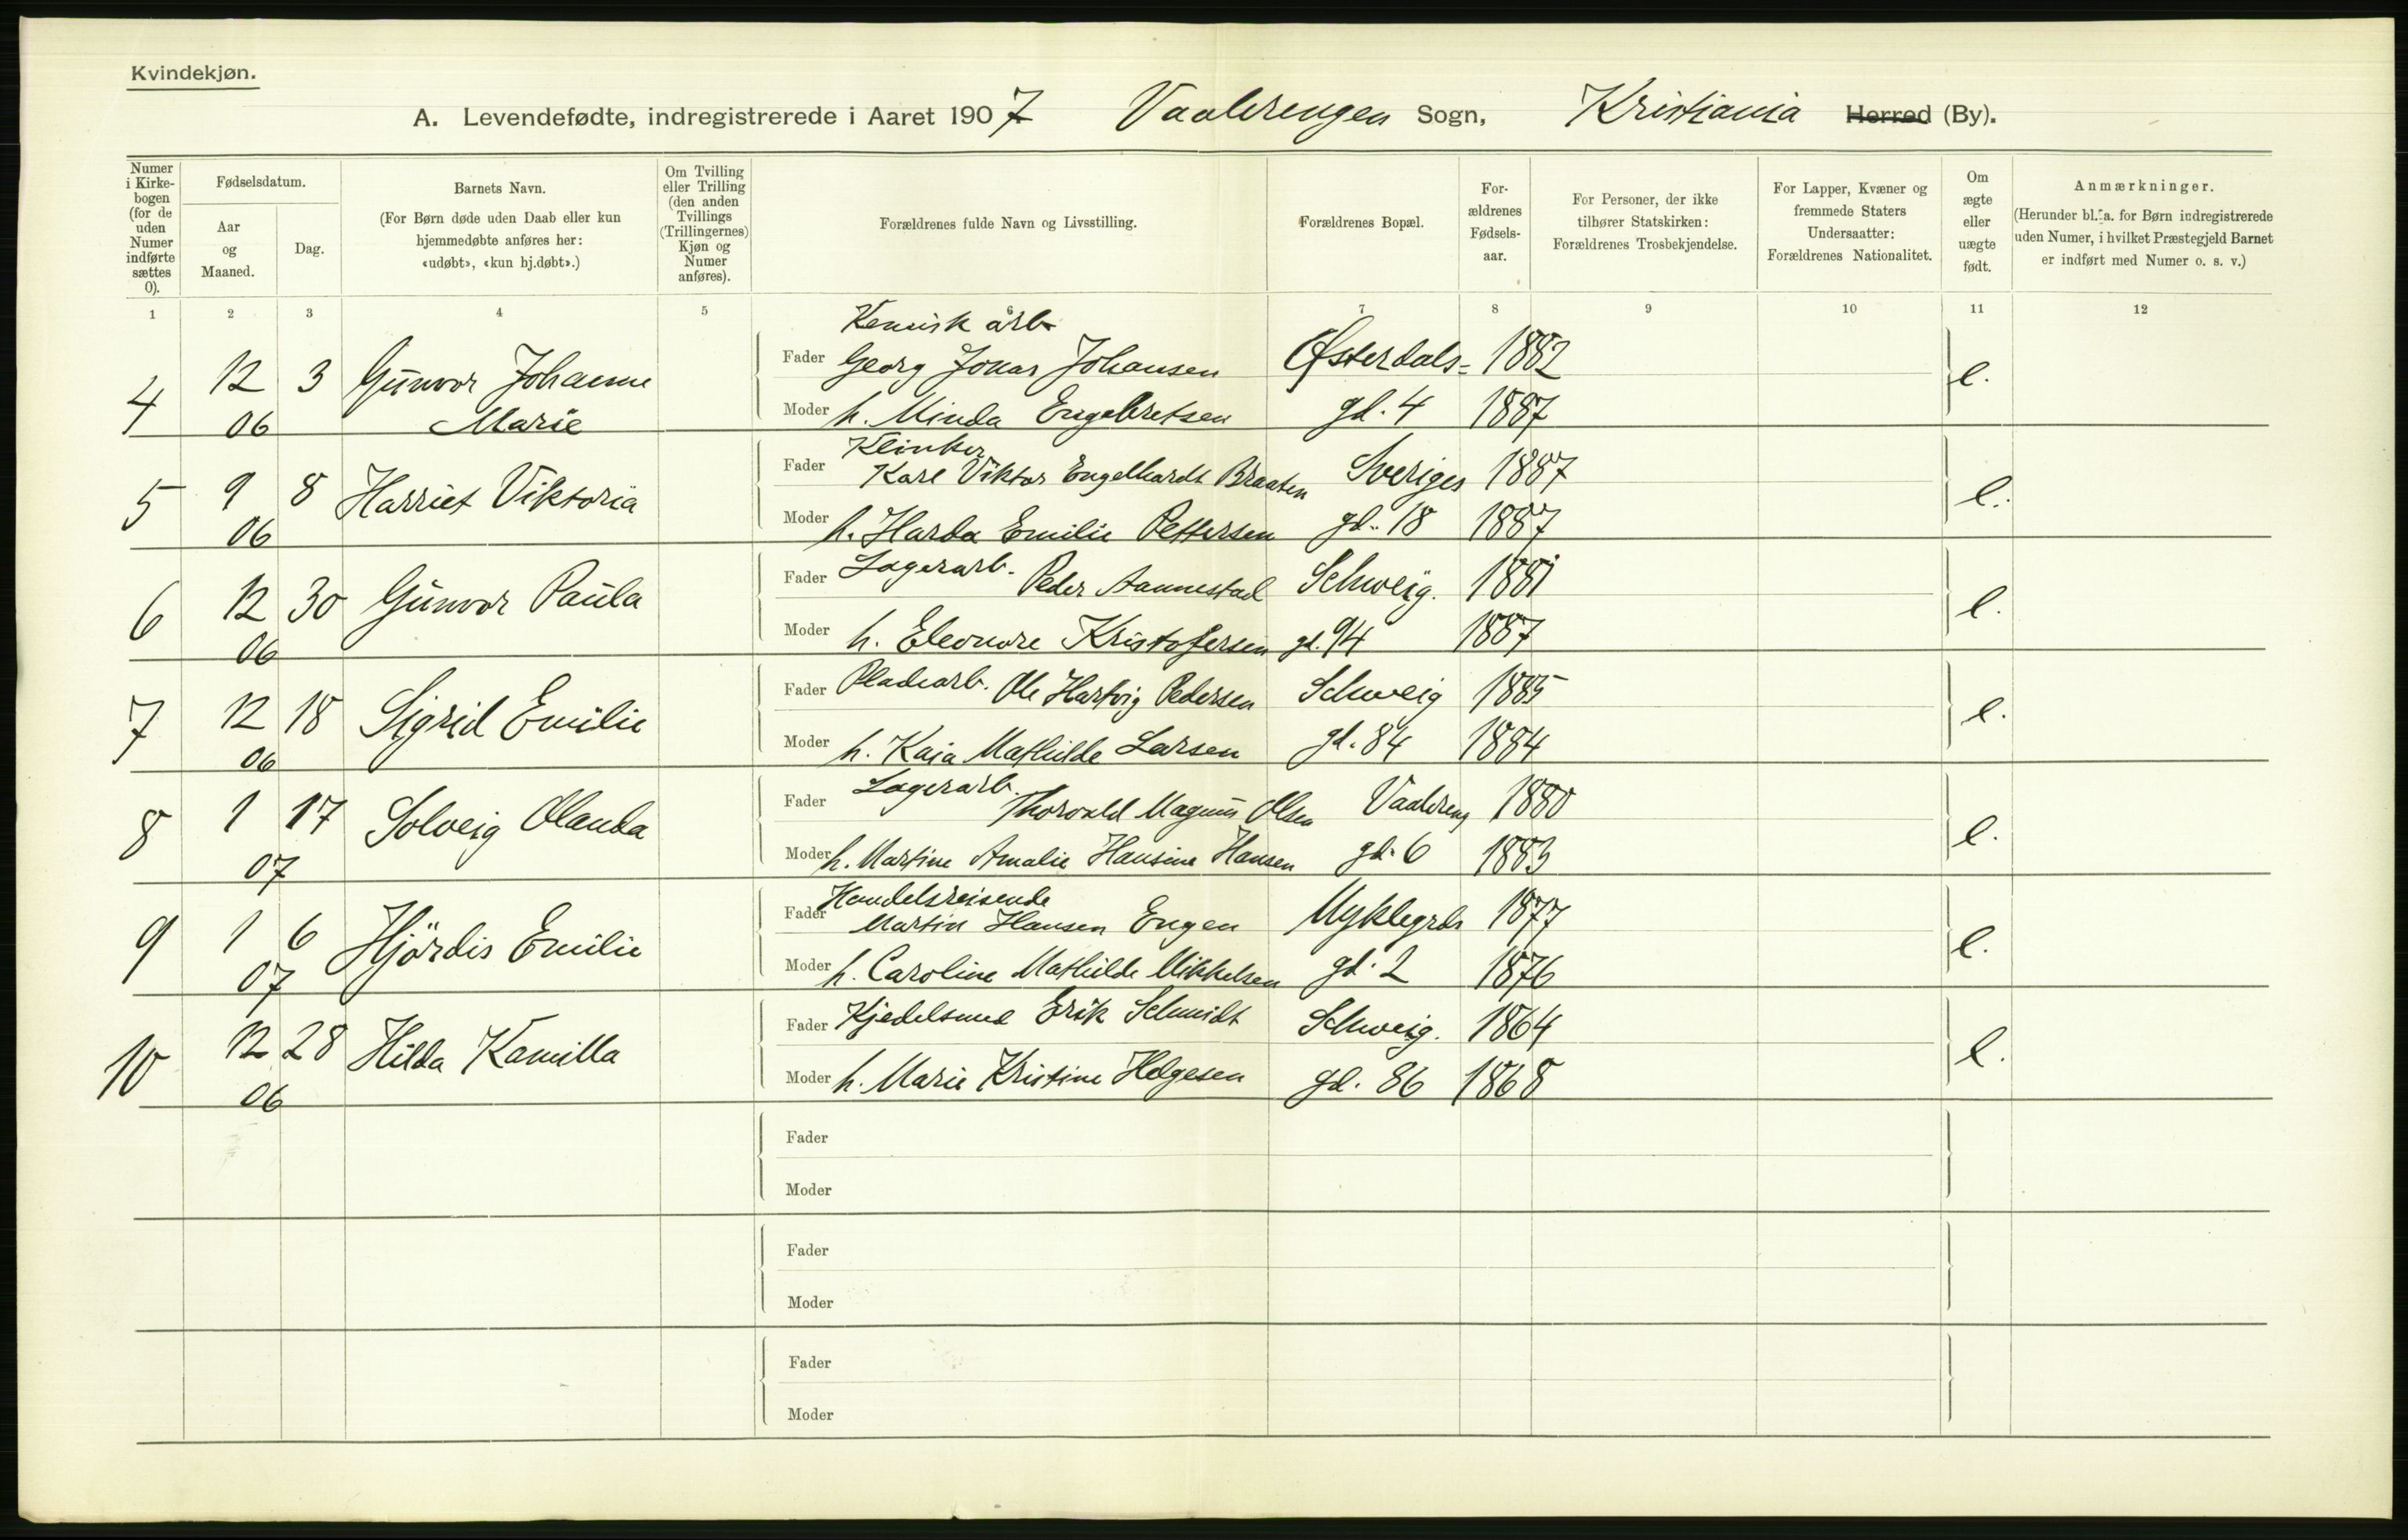 Kvindekjøn.
A. Levendefødte, indregistrerede i Aaret 1907 Vaalerengen Sogn, Kristiania Herred (By).
Numer i Kirkebogen (for de uden Numer indførte sættes 0).
Fødselsdatum.
Aar og Maaned.
Dag.
Barnets Navn.
(For Børn døde uden Daab eller kun hjemmedøbte anføres her: «udøbt», «kun hj.døbt».)
Om Tvilling eller Trilling (den anden Tvillings (Trillingernes) Kjøn og Numer anføres).
Forældrenes fulde Navn og Livsstilling.
Forældrenes Bopæl.
Forældrenes Fødselsaar.
For Personer, der ikke tilhører Statskirken: Forældrenes Trosbekjendelse.
For Lapper, Kvæner og fremmede Staters Undersaatter: Forældrenes Nationalitet.
Om ægte eller uægte født.
Anmærkninger.
(Herunder bl. a. for Børn indregistrerede uden Numer, i hvilket Præstegjeld Barnet er indført med Numer o. s. v.)
1 2 3 4 5 6 7 8 9 10 11 12
Kemisk arb
4 12 3 Gunvor Johanne Fader Georg Jonas Johansen Østerdals= 1882 e.
06 Marie Moder h. Minda Engebretsen gd. 4 1887
Klinker
5 9 8 Harriet Viktoria Fader Karl Viktor Engelhardt Braaten Sveriges 1887 e.
06 Moder h. Harda Emilie Pettersen gd. 18 1887
6 12 30 Gunvor Paula Fader Lagerarb. Peder Aannestad Schweig. 1881 e.
06 Moder h. Eleonore Kristofersen gd. 94 1887
7 12 18 Sigrid Emilie Fader Pladearb. Ole Hartvig Pedersen Schweig 1885 e.
06 Moder h. Kaja Mathilde Larsen gd. 84 1884
Lagerarb.
8 1 17 Solveig Olanda Fader Thorvald Magnus Olsen Vaalereng 1880 e.
07 Moder h. Martine Amalie Hansine Hansen gd. 6 1883
Handelsreisende
9 1 6 Hjördis Emilie Fader Martin Hansen Engen Myklegrds 1877 e.
07 Moder h. Caroline Mathilde Mikkelsen gd. 2 1876
10 12 28 Hilda Kamilla Fader Kjedelsmed Erik Schmidt Schweig. 1864 e.
06 Moder h. Marie Kristine Helgesen gd. 86 1868
Fader
Moder
Fader
Moder
Fader
Moder